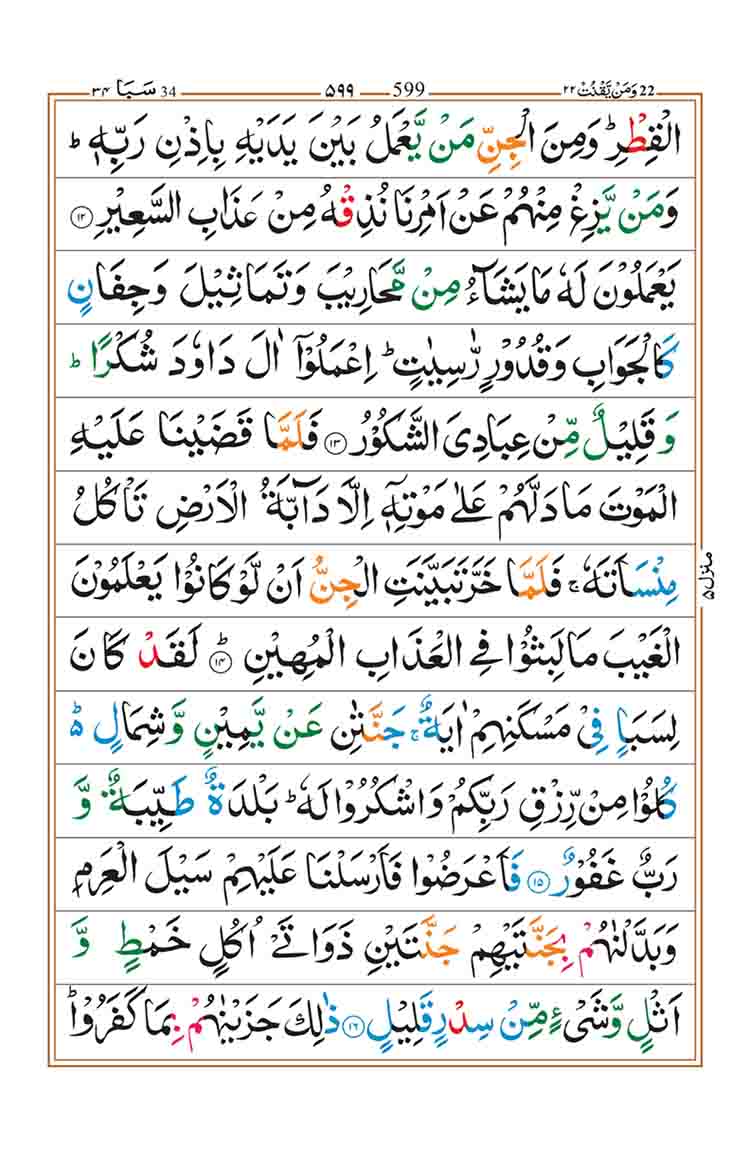 22 وَمَنْ يَّقْنُتْ ۲۲ 599 ۵۹۹ 34 سَبَا ۳۴
الْقِطْرِ ؕ وَمِنَ الْجِنِّ مَنْ يَّعْمَلُ بَيْنَ يَدَيْهِ بِاِذْنِ رَبِّهٖ ؕ
وَمَنْ يَّزِغْ مِنْهُمْ عَنْ اَمْرِنَا نُذِقْهُ مِنْ عَذَابِ السَّعِيْرِ ۝۱۲
يَعْمَلُوْنَ لَهٗ مَا يَشَآءُ مِنْ مَّحَارِيْبَ وَتَمَاثِيْلَ وَجِفَانٍ
كَالْجَوَابِ وَقُدُوْرٍ رّٰسِيٰتٍ ؕ اِعْمَلُوْۤا اٰلَ دَاوٗدَ شُكْرًا ؕ
وَقَلِيْلٌ مِّنْ عِبَادِيَ الشَّكُوْرُ ۝۱۳ فَلَمَّا قَضَيْنَا عَلَيْهِ
الْمَوْتَ مَا دَلَّهُمْ عَلٰى مَوْتِهٖۤ اِلَّا دَآبَّةُ الْاَرْضِ تَاْكُلُ
مِنْسَاَتَهٗ ۚ فَلَمَّا خَرَّ تَبَيَّنَتِ الْجِنُّ اَنْ لَّوْ كَانُوْا يَعْلَمُوْنَ
الْغَيْبَ مَا لَبِثُوْا فِي الْعَذَابِ الْمُهِيْنِ ؕ۝۱۴ لَقَدْ كَانَ
لِسَبَاٍ فِيْ مَسْكَنِهِمْ اٰيَةٌ ۚ جَنَّتٰنِ عَنْ يَّمِيْنٍ وَّشِمَالٍ ؕ۬
كُلُوْا مِنْ رِّزْقِ رَبِّكُمْ وَاشْكُرُوْا لَهٗ ؕ بَلْدَةٌ طَيِّبَةٌ وَّ
رَبٌّ غَفُوْرٌ ۝۱۵ فَاَعْرَضُوْا فَاَرْسَلْنَا عَلَيْهِمْ سَيْلَ الْعَرِمِ
وَبَدَّلْنٰهُمْ بِجَنَّتَيْهِمْ جَنَّتَيْنِ ذَوَاتَيْ اُكُلٍ خَمْطٍ وَّ
اَثْلٍ وَّشَيْءٍ مِّنْ سِدْرٍ قَلِيْلٍ ۝۱۶ ذٰلِكَ جَزَيْنٰهُمْ بِمَا كَفَرُوْا ؕ
منزل ۵